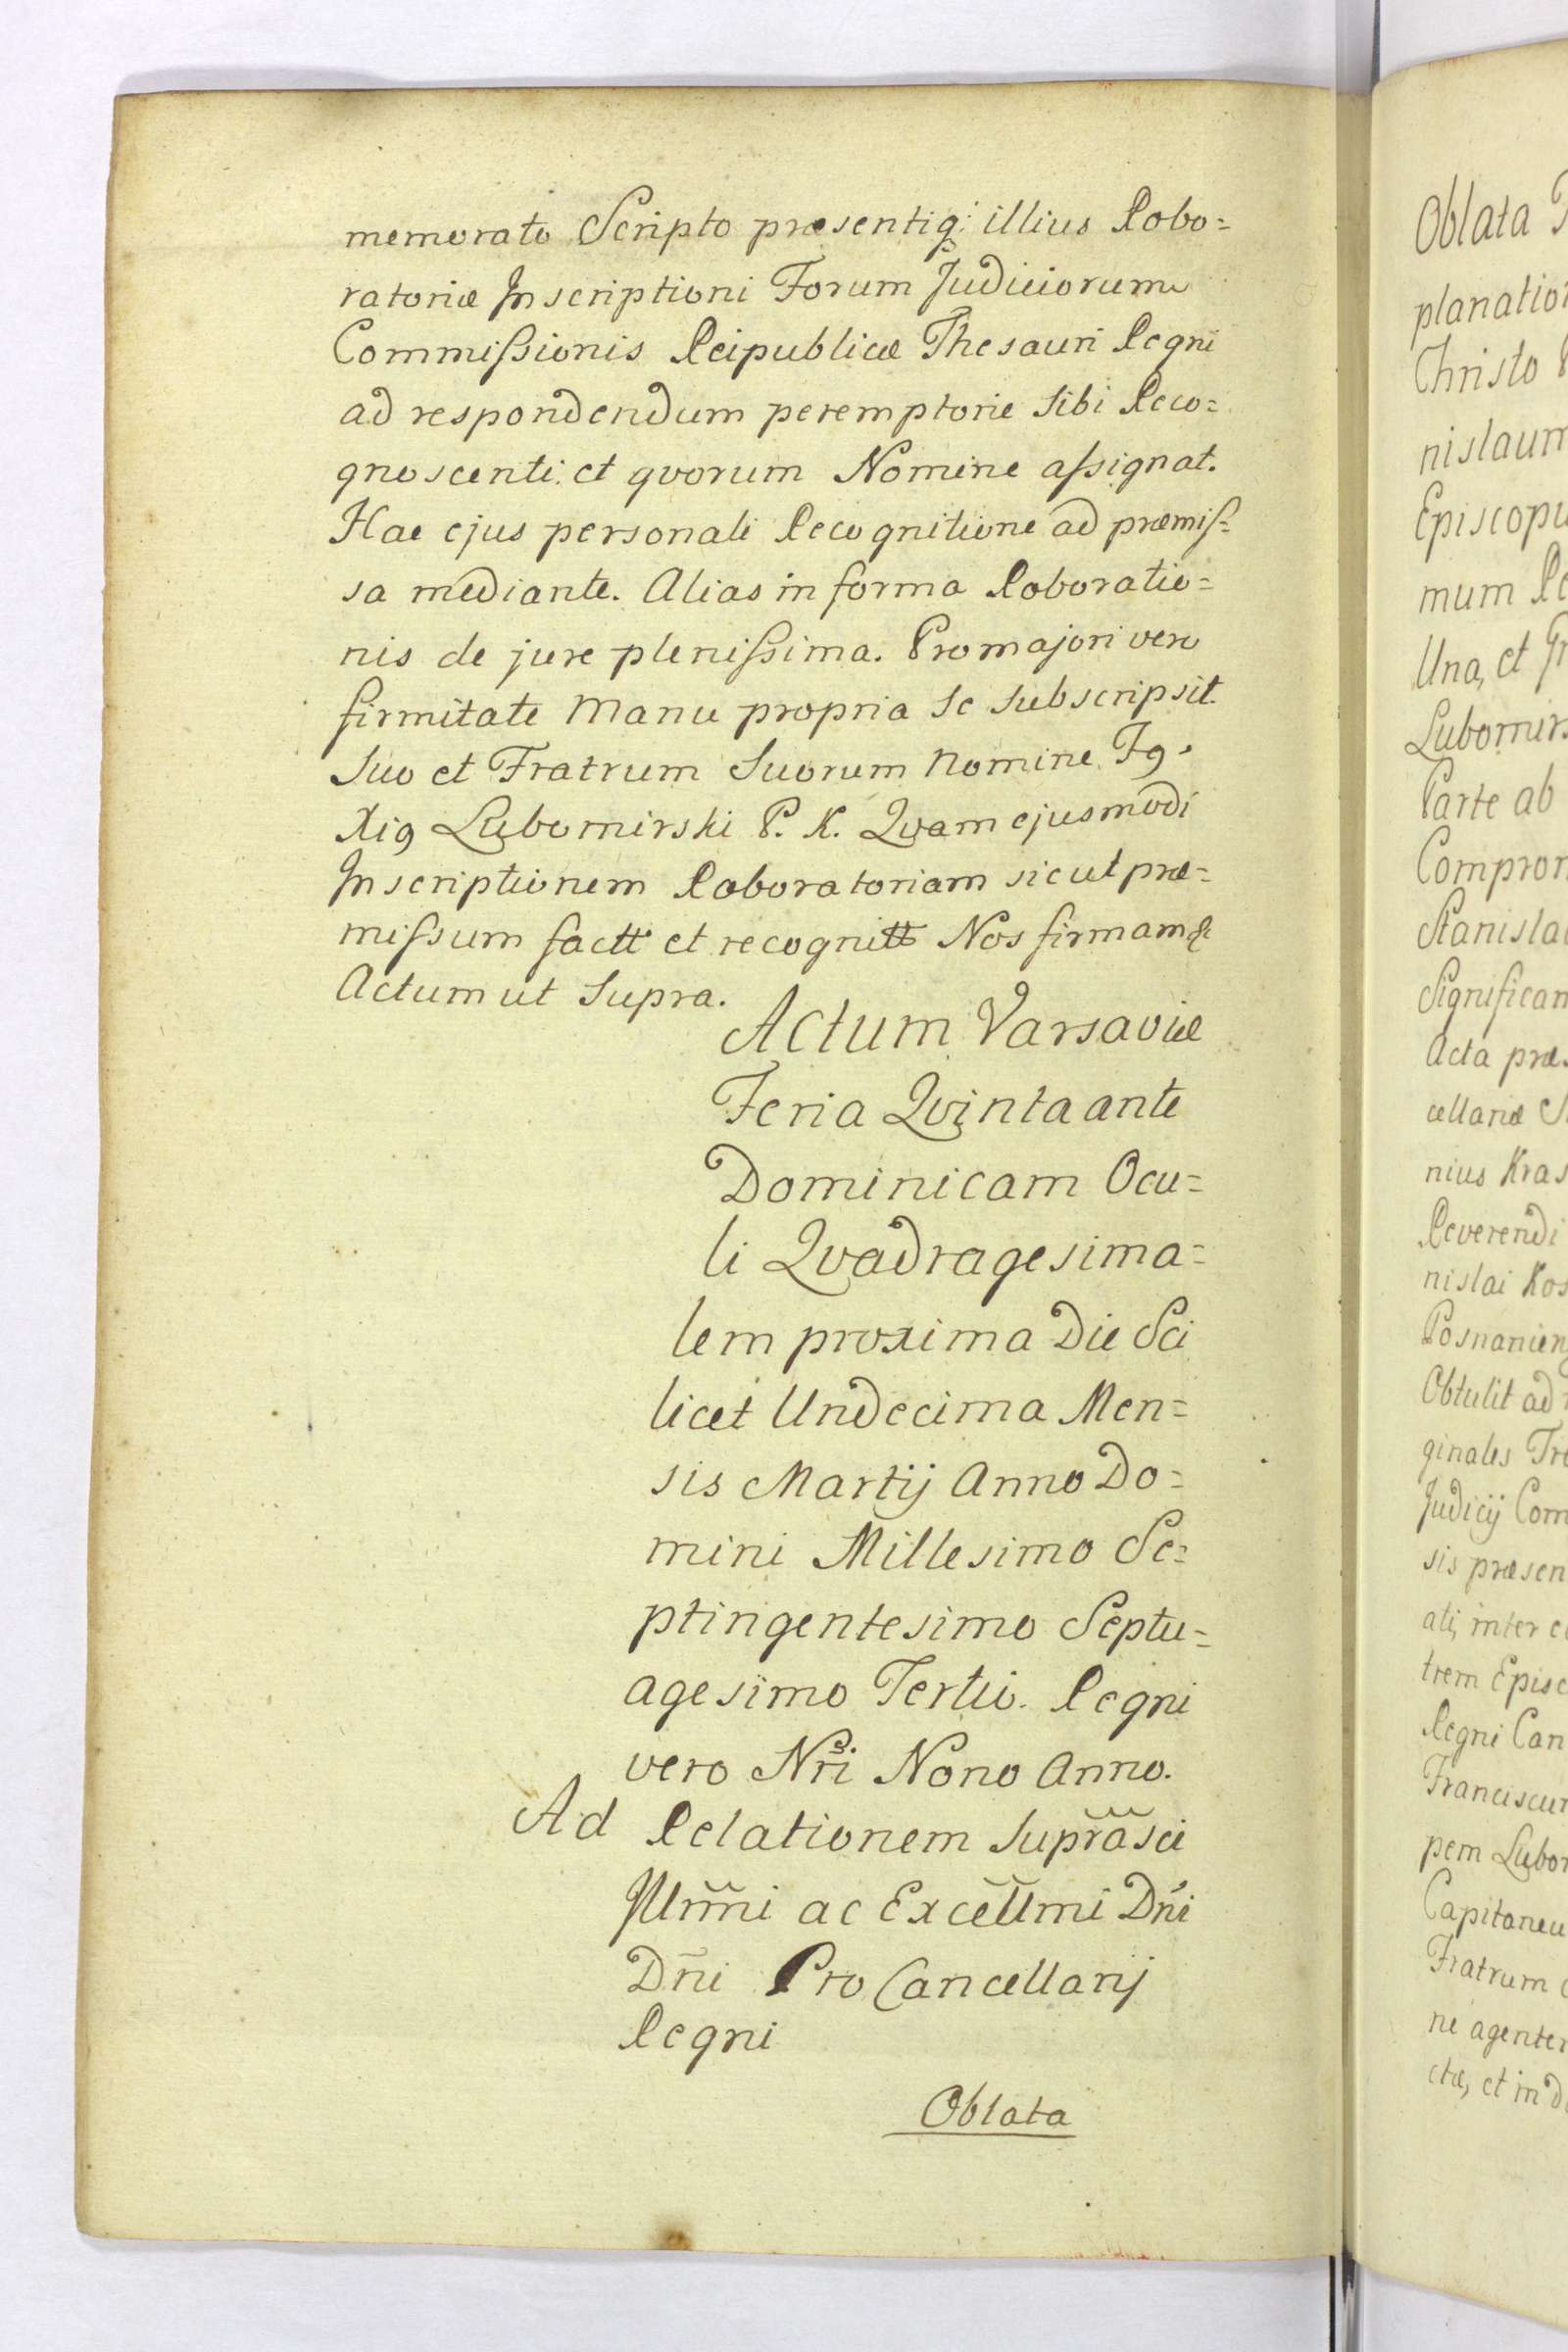 memorato Scripto præsentiq: illius Robo=
ratoriæ Inscriptioni Forum Judiciorum
Commißionis Reipublicæ Thesauri Regni
ad respondendum peremptorie sibi Reco=
gnoscenti et qvorum Nomine aßignat.
Hac ejus personali Recognitione ad præmiß=
sa mediante. Alias in forma Roboratio=
nis de jure plenißima. Pro majori vero
firmitate manu propria se subscripsit.
Suo et Fratrum Suorum nomine F9.
Xi9 Lubomirski P. K. Qvam ejusmodi
Inscriptionem Roboratoriam sicut præ=
mißum factt et recognitt Nos firmam &
Actum ut supra.
Actum Varsaviæ
Feria Qvinta ante
Dominicam Ocu=
li Qvadragesima=
lem proxima Die Sci
licet Undecima Men=
sis Martij Anno Do=
mini Millesimo Se=
ptingentesimo Septu=
agesimo Tertio. Regni
vero Nri Nono Anno.
Ad Relationem supra sci
Illmi ac Excellmi Dni
Dni Pro Cancellarij
Regni
Oblata
Oblata
planatio
Christo
nislaum
Episcopu
mum Re
Una, et
Lubomirs
Parte ab
Comprom
Stanisla
Significan
Acta præs
cellariæ
nius Kras
Reverendi
nislai Kos
Posnanien
Obtulit ad
ginales Tr
Judicij Com
sis præsen
ati, inter e
trem Episc
Regni Can
Franciscum
pem Lubo
Capitaneu
Fratrum
ne agente
ctæ, et in D